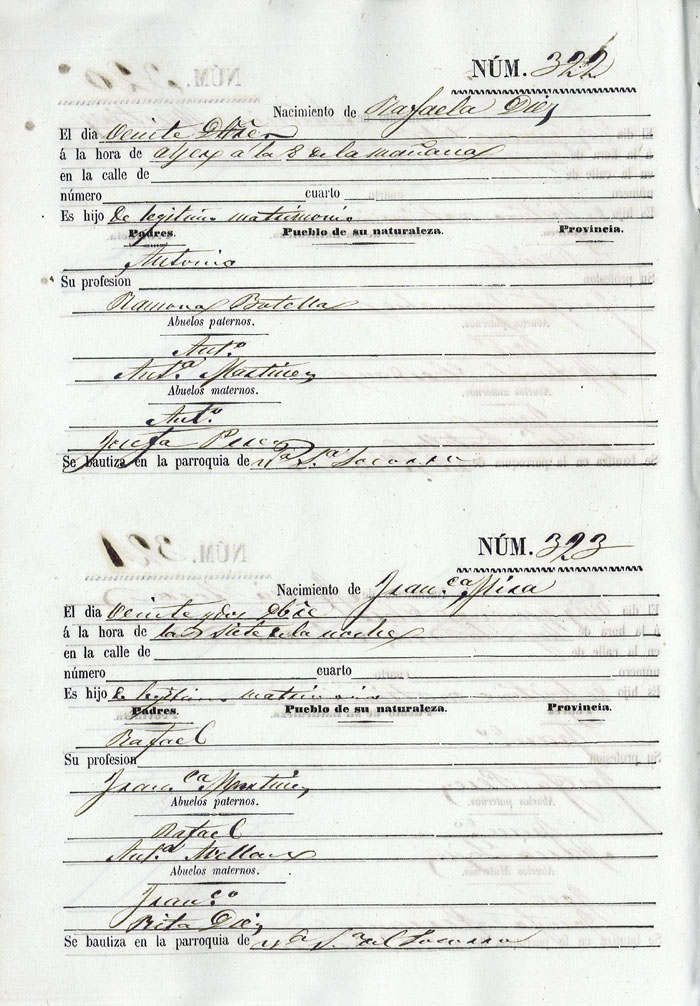 NÚM. 322
Nacimiento de Rafaela Diez
El dia veinte Dbre
á la hora de ayer á la 8 de la mañana
en la calle de
número cuarto
Es hijo de legitimo matrimonio
Padres. Pueblo de su naturaleza. Provincia.
Antonio
Su profesion
Ramona Botella
Abuelos paternos.
Antº
Antª Martinez
Abuelos maternos.
Antº
Josefa
Se bautiza en la parroquia de Nª Sª Socorro
NÚM. 323
Nacimiento de Francª Mira
El dia veinte y dos Dbre
á la hora de las siete de la noche
en la calle de
número cuarto
Es hijo de legitimo matrimonio
Padres. Pueblo de su naturaleza. Provincia.
Rafael
Su profesion
Francª Martinez
Abuelos paternos.
Rafael
Antª Avellan
Abuelos maternos.
Francº
Rita Diez
Se bautiza en la parroquia de Nª Sª del Socorro